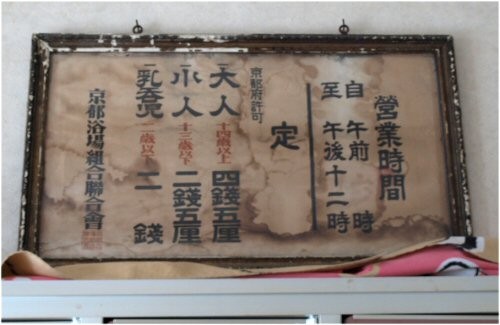 營業時間
自 午前 時
至 午後十二時
定
京都府許可
一大人 十四歳以上 四錢五厘
一小人 十三歳以下 二錢五厘
一乳呑児 歳以下 二錢
京都浴場組合聯合會